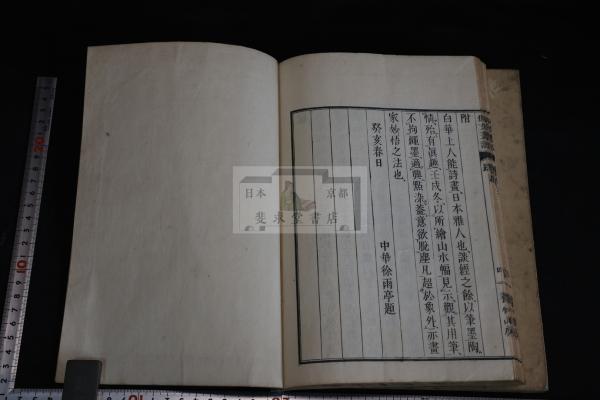 附
白華上人能詩畫日本雅人也談經之餘以筆墨陶
情殆有眞趣壬戌冬以所繪山水幅見示觀其用筆
不拘繩墨過興點染蓋意欲脫塵凡超於象外亦畫
家妙悟之法也
癸亥春日
中華徐雨亭題
日本
京都
斐求堂書店